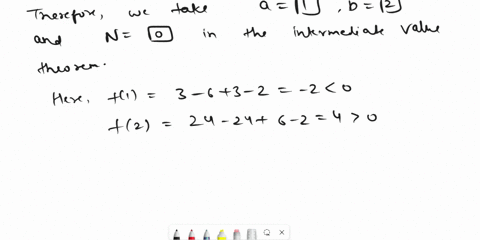 Therefore, we take a = 1, b = 2
and N = 0 in the intermediate value
theorem.
Here, f(1) = 3 - 6 + 3 - 2 = -2 < 0
f(2) = 24 - 24 + 6 - 2 = 4 > 0